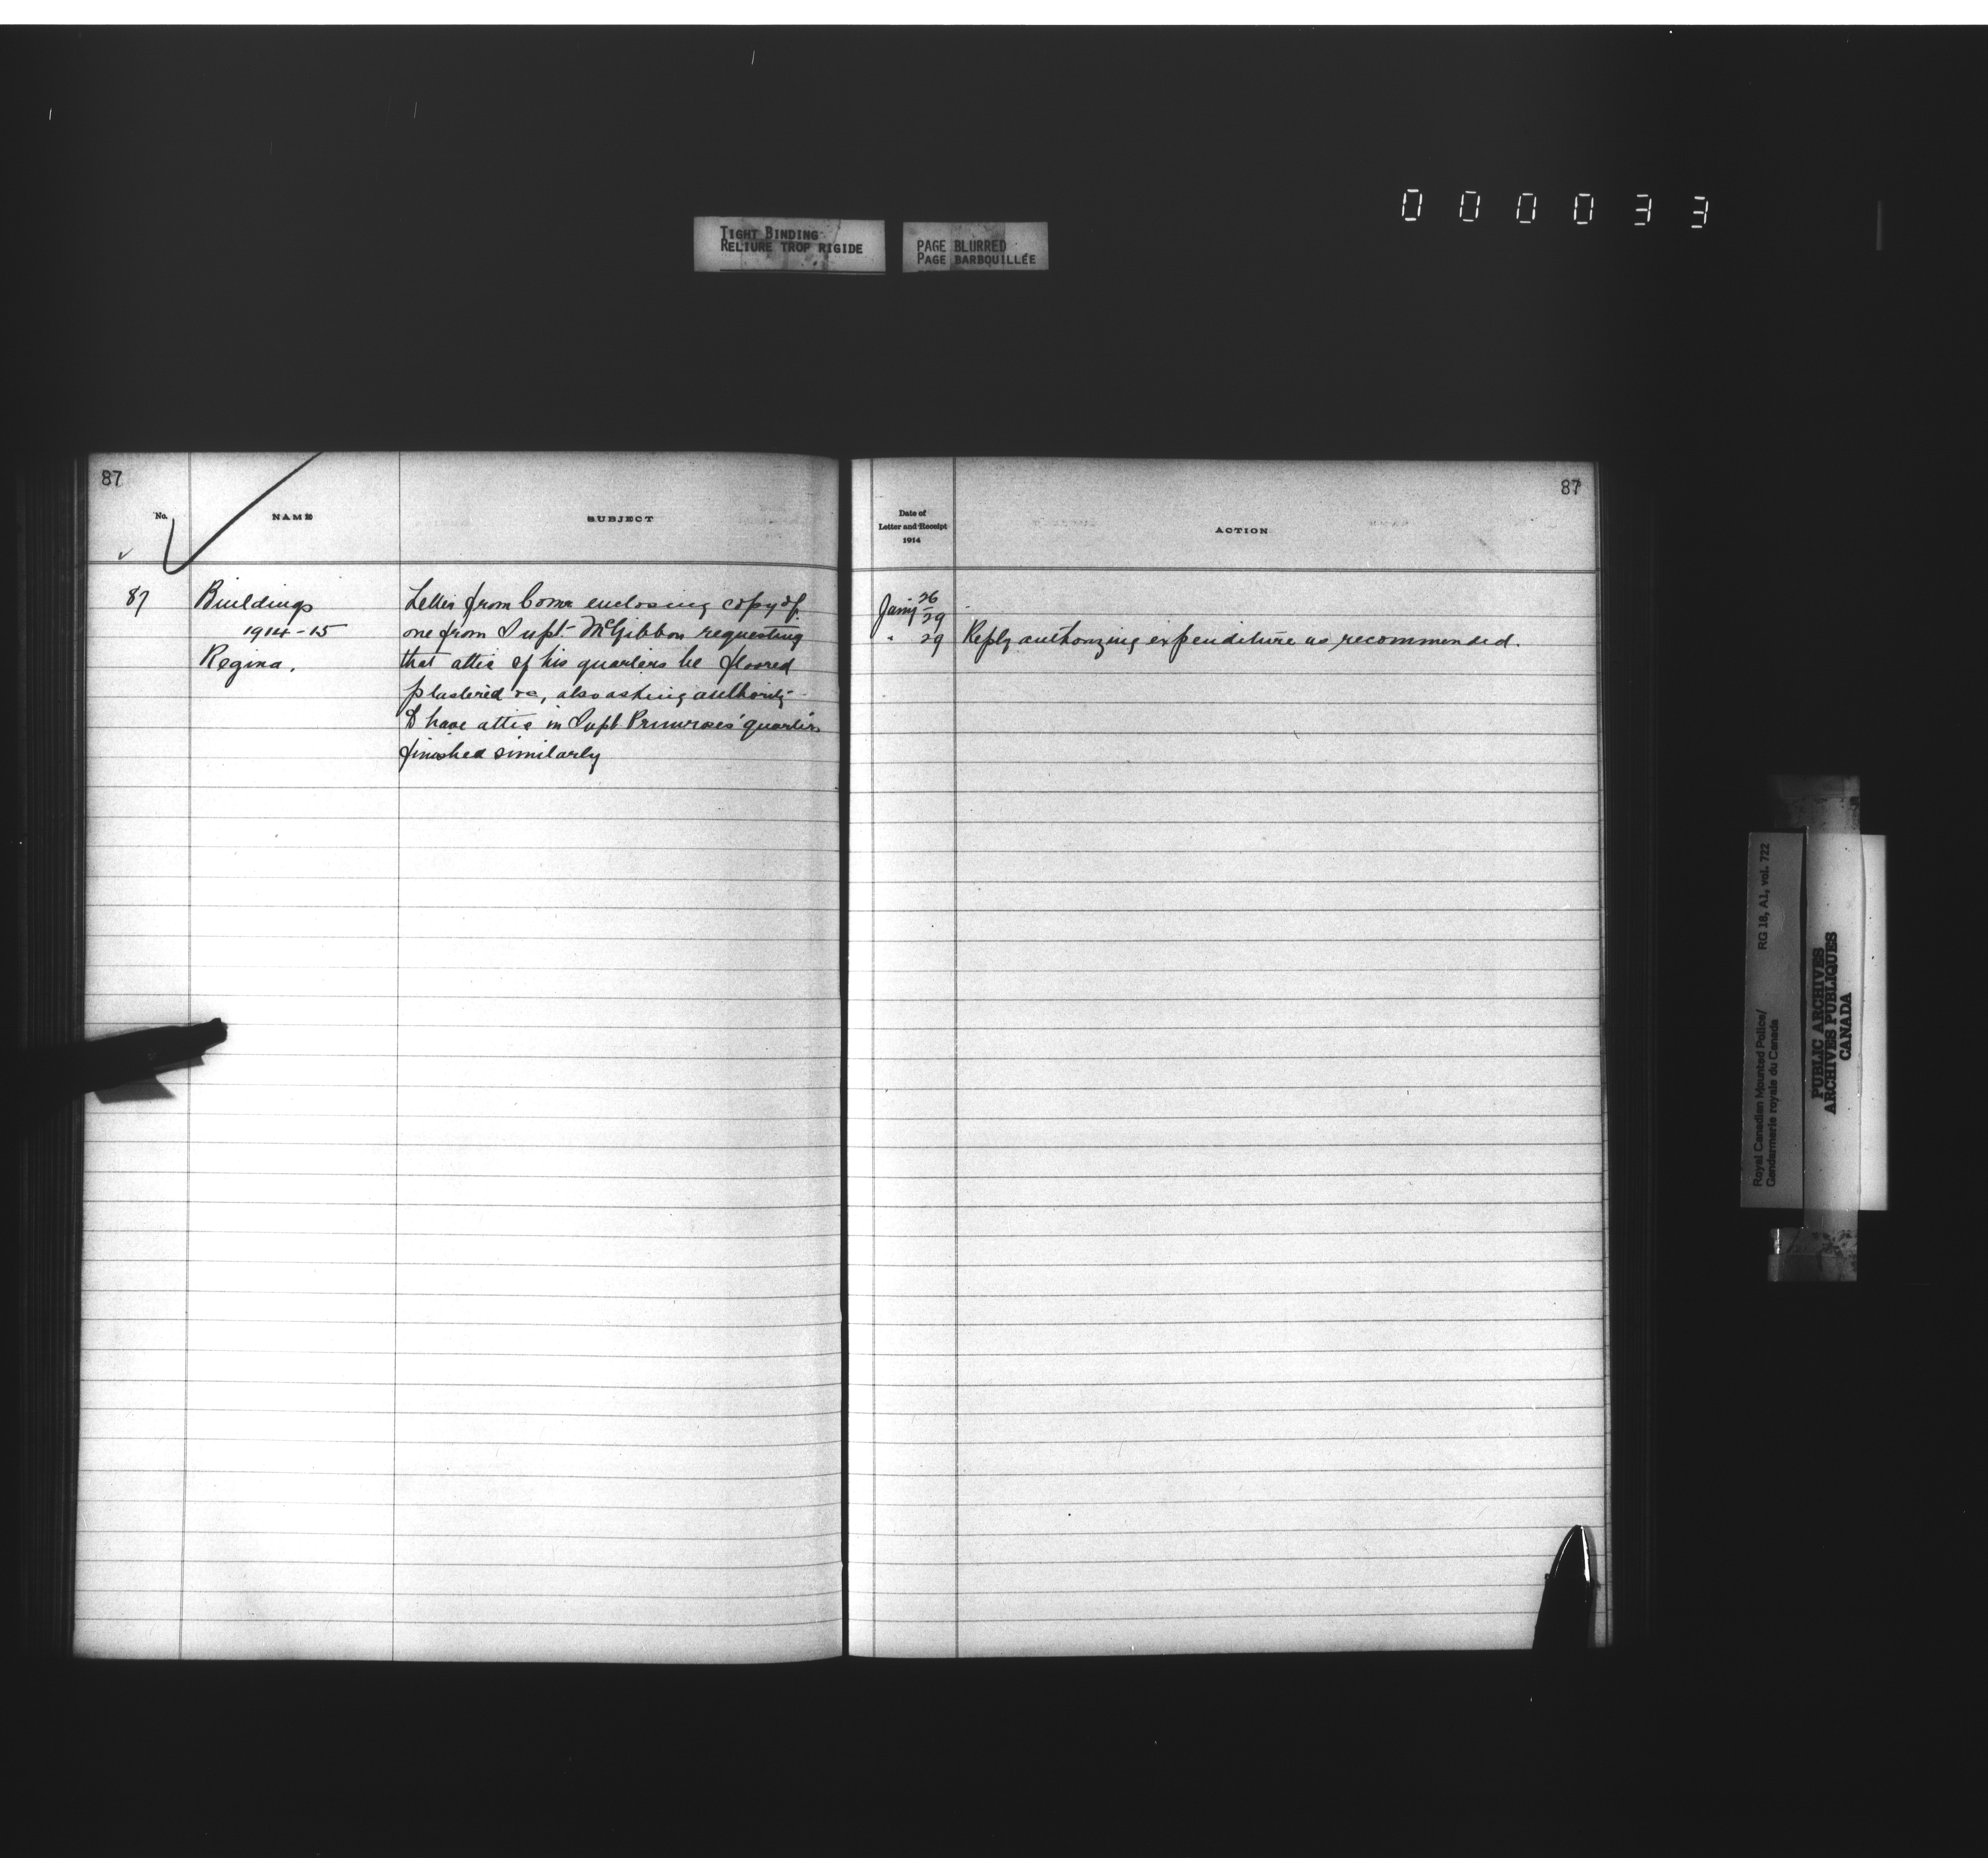 000033
TIGHT BINDING
RELIURE TROP RIGIDE
PAGE BLURRED
PAGE BARBOUILLÉE
87
No.
NAME
SUBJECT
87
Buildings
1914-15
Regina.
Letter from Comr enclosing copy of
one from Supt. McGibbon requesting
that attic of his quarters be floored
plastered &c, also asking authority
to have attic in Supt. Primroses' quarters
finished similarly
87
Date of
Letter and Receipt
1914
ACTION
Jany 26
29
" 29 Reply authorizing expenditure as recommended.
Royal Canadian Mounted Police/ RG 18, A1, vol. 722
Gendarmerie royale du Canada
PUBLIC ARCHIVES
ARCHIVES PUBLIQUES
CANADA